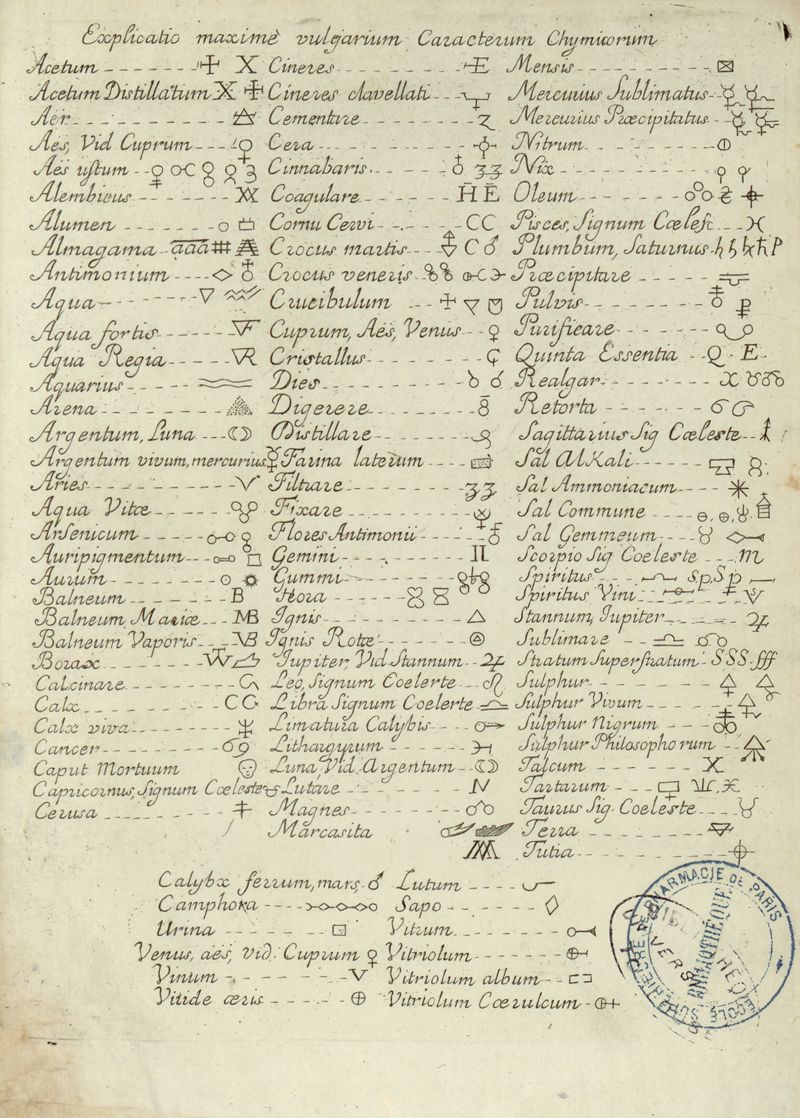 Explicatio maximè vulgarium Caracterum Chymicorum
Acetum
Acetum Distillatum
Aer
Aes, Vid Cuprum
Aes ustum
Alembicus
Alumen
Almagama aaa
Antimonium
Aqua
Aqua fortis
Aqua Regia
Aquarius
Arena
Argentum, Luna
Argentum vivum, mercurius
Aries
Aqua Vitæ
Arsenicum
Auripigmentum
Aurum
Balneum B
Balneum Mariæ MB
Balneum Vaporis VB
Borax
Calcinare
Calx CC
Calx viva
Cancer
Caput Mortuum
Capricornus, Signum Cœleste
Cerusa
Cineres E
Cineres clavellati
Cementare
Cera
Cinnabaris
Coagulare H E
Cornu Cervi CC
Crocus martis
Crocus veneris
Crucibulum
Cuprum, Aes, Venus
Cristallus
Dies
Digerere
Distillare
Farina laterum
Filtrare
Fixare
Flores Antimonii
Gemini
Gummi
Hora
Ignis
Ignis Rotæ
Jupiter, Vid Stannum
Leo, Signum Coelerte
Libra Signum Coelerte
Limatura Calybis
Lithargyrum
Luna, Vid. Argentum
Lutare
Magnes
Marcasita
Mensis
Mercurius Sublimatus
Mercurius Præcipitatus
Nitrum
Nix
Oleum
Pisces, Signum Cœlest
Plumbum, Saturnus
Præcipitare
Pulvis
Purificare
Quinta Essentia Q. E.
Realgar
Retorta
Sagittarius Sig Cœleste
Sal Alkali
Sal Ammoniacum
Sal Commune
Sal Gemmeum
Scorpio Sig Coeleste
Spiritus Sp. Sp
Spiritus Vini
Stannum, Jupiter
Sublimare
Stratum Superstratum SSS. fff
Sulphur
Sulphur Vivum
Sulphur Nigrum
Sulphur Philosophorum
Talcum X
Tartarum
Taurus Sig. Coeleste
Terra
Tutia
Calybx ferrum, mars ♂
Camphora
Urina
Venus, aes, vid. Cuprum ♀
Vinum
Viride æris
Lutum
Sapo
Vitrum
Vitriolum
Vitriolum album
Vitriolum Cœrulcum
ECOLE SUPÉRIEURE DE PHARMACIE DE PARIS
BIBLIOTHÈQUE